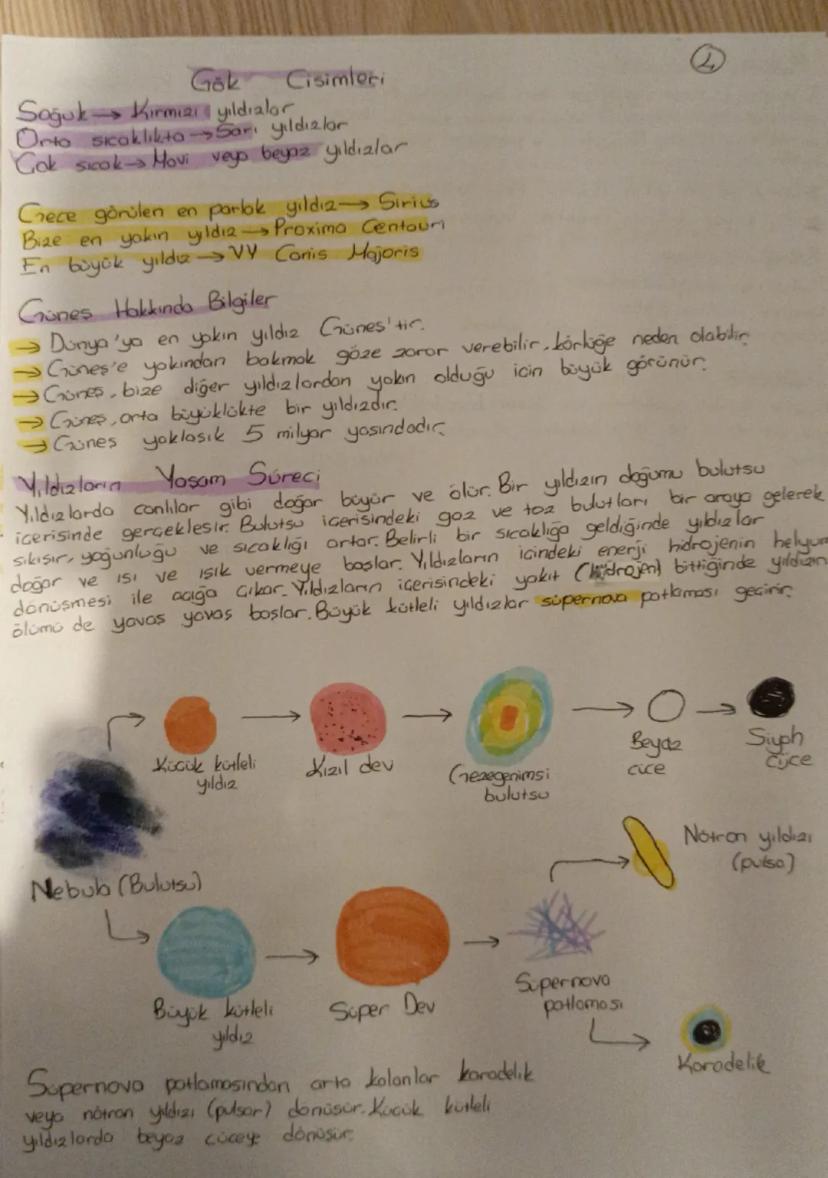 2
Gök Cisimleri
Soğuk → Kırmızı yıldızlar
Orta sıcaklıkta → Sarı yıldızlar
Çok sıcak → Mavi veya beyaz yıldızlar
Gece görülen en parlak yıldız → Sirius
Bize en yakın yıldız → Proxima Centauri
En büyük yıldız → VY Canis Majoris
Güneş Hakkında Bilgiler
→ Dünya'ya en yakın yıldız Güneş'tir.
→ Güneş'e yakından bakmak göze zarar verebilir, körlüğe neden olabilir.
→ Güneş, bize diğer yıldızlardan yakın olduğu için büyük görünür.
→ Güneş, orta büyüklükte bir yıldızdır.
→ Güneş yaklaşık 5 milyar yaşındadır.
Yıldızların Yaşam Süreci
Yıldızlarda canlılar gibi doğar büyür ve ölür. Bir yıldızın doğumu bulutsu
içerisinde gerçekleşir. Bulutsu içerisindeki gaz ve toz bulutları bir araya gelerek
sıkışır, yoğunluğu ve sıcaklığı artar. Belirli bir sıcaklığa geldiğinde yıldızlar
doğar ve ısı ve ışık vermeye başlar. Yıldızların içindeki enerji hidrojenin helyum
dönüşmesi ile açığa çıkar. Yıldızların içerisindeki yakıt (hidrojen) bittiğinde yıldızın
ölümü de yavaş yavaş başlar. Büyük kütleli yıldızlar süpernova patlaması geçirir.
Küçük kütleli
yıldız
Kızıl dev
Gezegenimsi
bulutsu
Beyaz
cüce
Siyph
cüce
Nebula (Bulutsu)
Büyük kütleli
yıldız
Süper Dev
Süpernova
patlaması
Nötron yıldızı
(pulsa)
Karadelik
Süpernova patlamasından arta kalanlar karadelik
veya nötron yıldızı (pulsar) dönüşür. Küçük kütleli
yıldızlarda beyaz cüceye dönüşür.